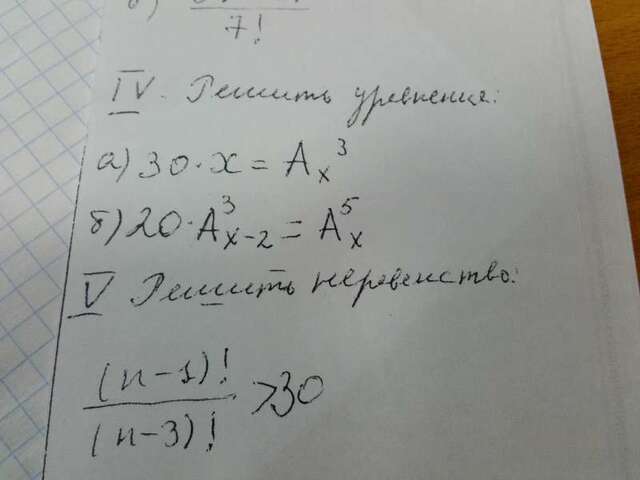 7!
IV. Решить уравнения:
а) 30·x = Aₓ³
б) 20·A³ₓ₋₂ = A⁵ₓ
V Решить неравенство:
(n-1)!
(n-3)! >30